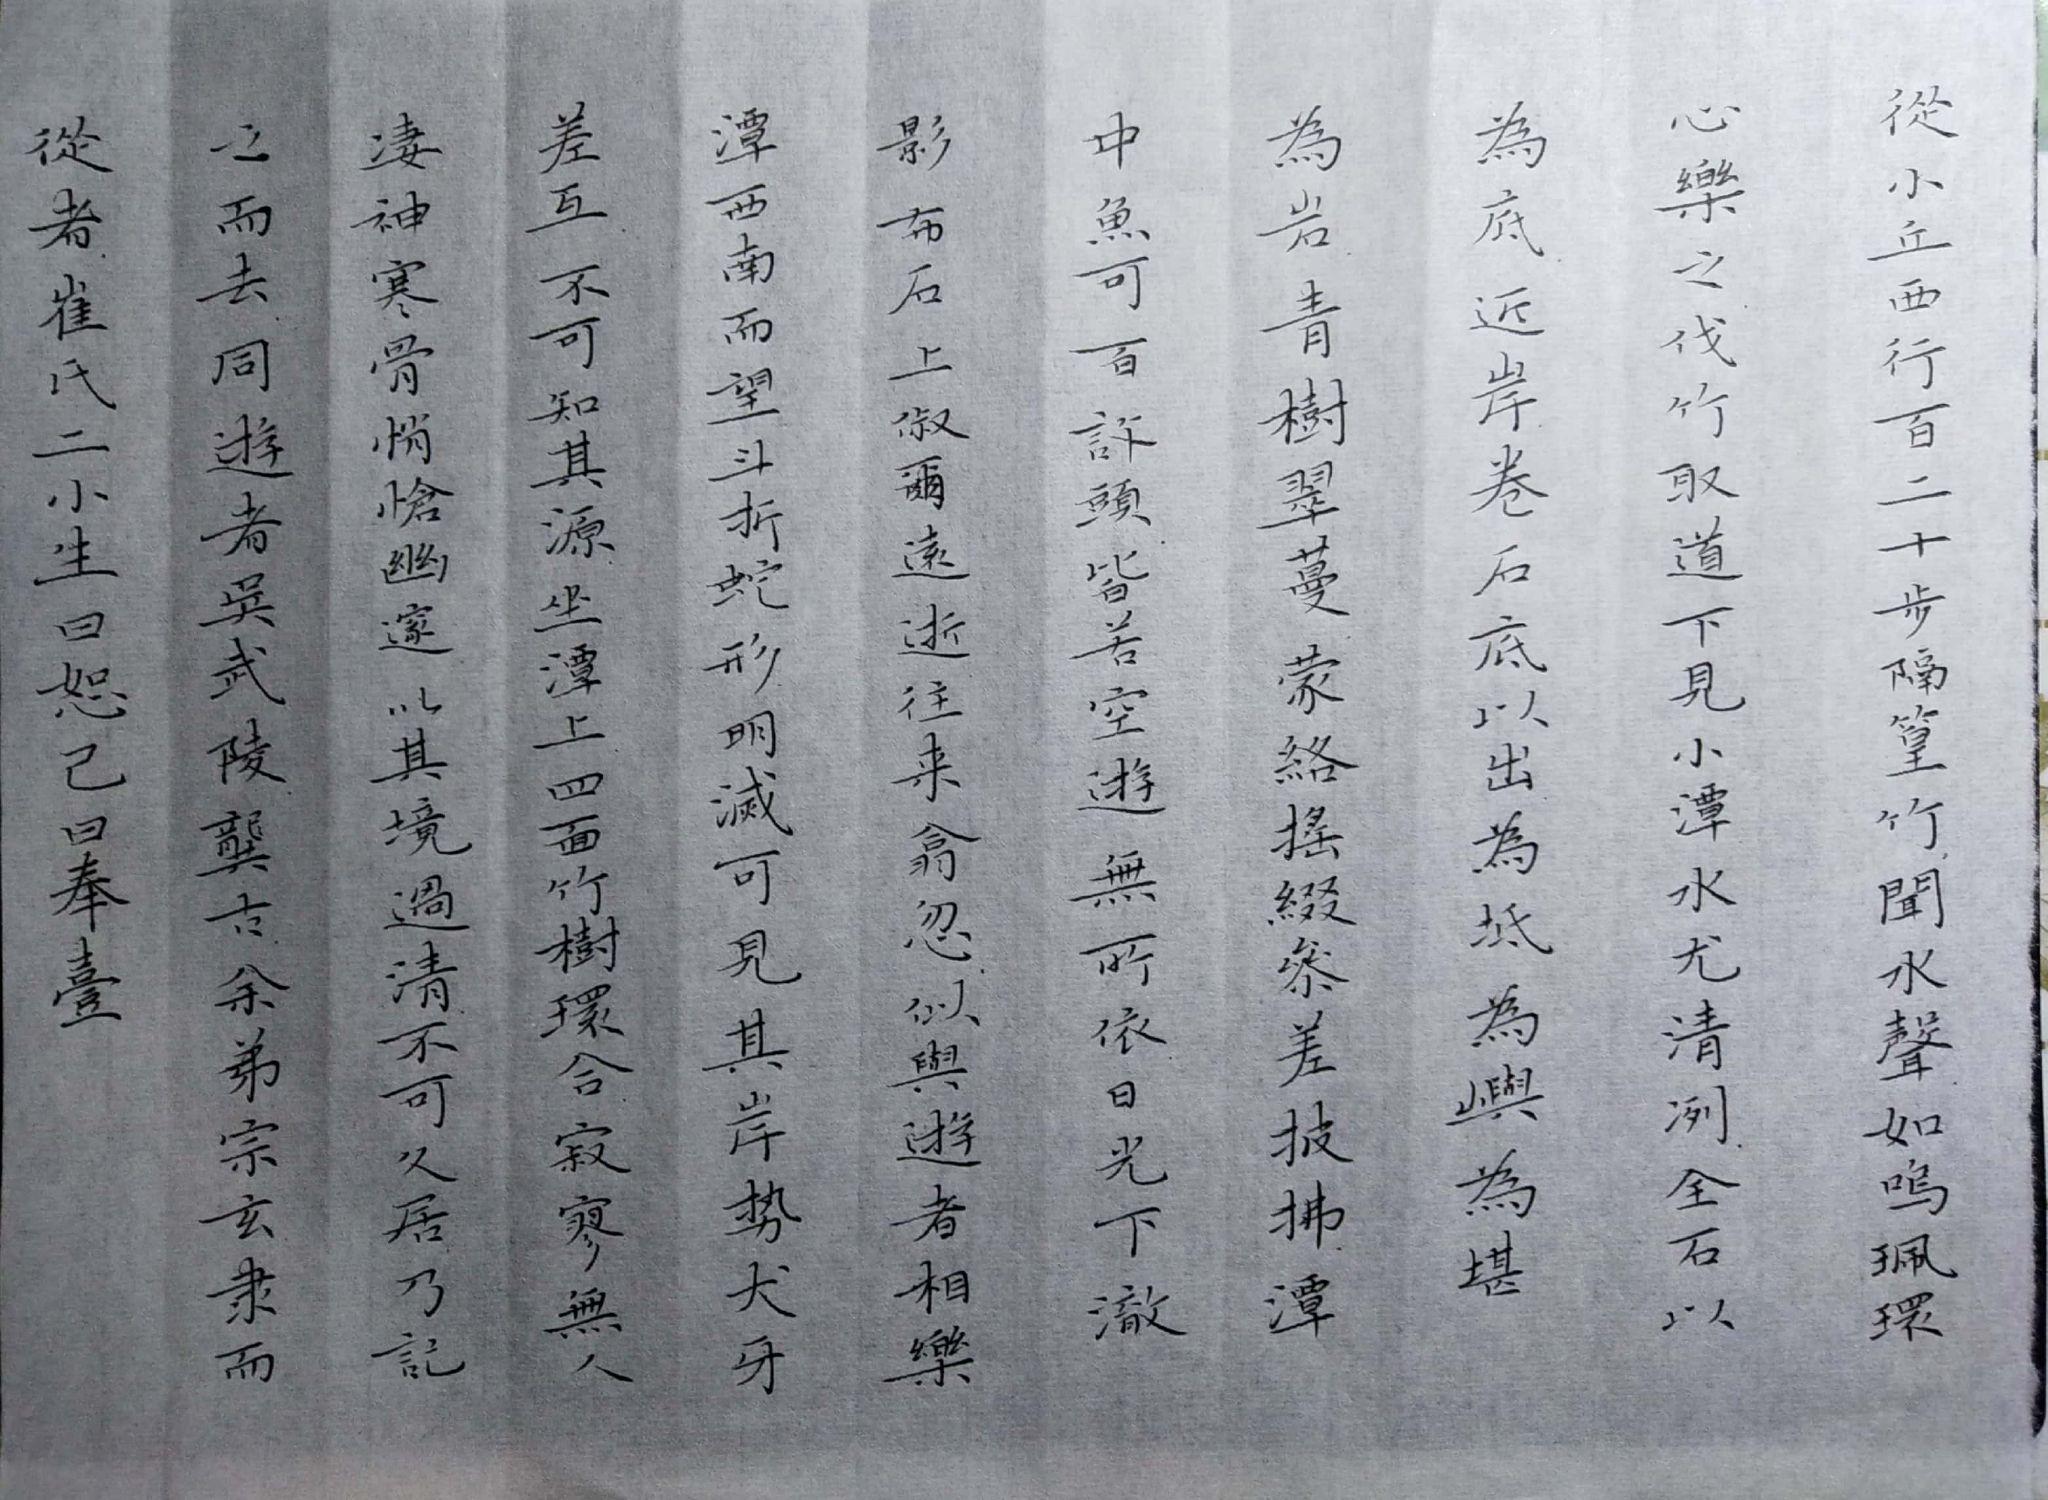 從小丘西行百二十步隔篁竹聞水聲如嗚珮環
心樂之伐竹取道下見小潭水尤清冽全石以
為底近岸卷石底以出為坻為嶼為堪
為岩青樹翠蔓蒙絡搖綴參差披拂潭
中魚可百許頭皆若空遊無所依日光下澈
影布石上俶爾遠逝往来翕忽似與遊者相樂
潭西南而望斗折蛇形明滅可見其岸勢犬牙
差互不可知其源坐潭上四面竹樹環合寂寥無人
淒神寒骨悄愴幽邃以其境過清不可久居乃記
之而去同遊者吳武陵龔古余弟宗玄隶而
從者崔氏二小生曰恕己曰奉壹